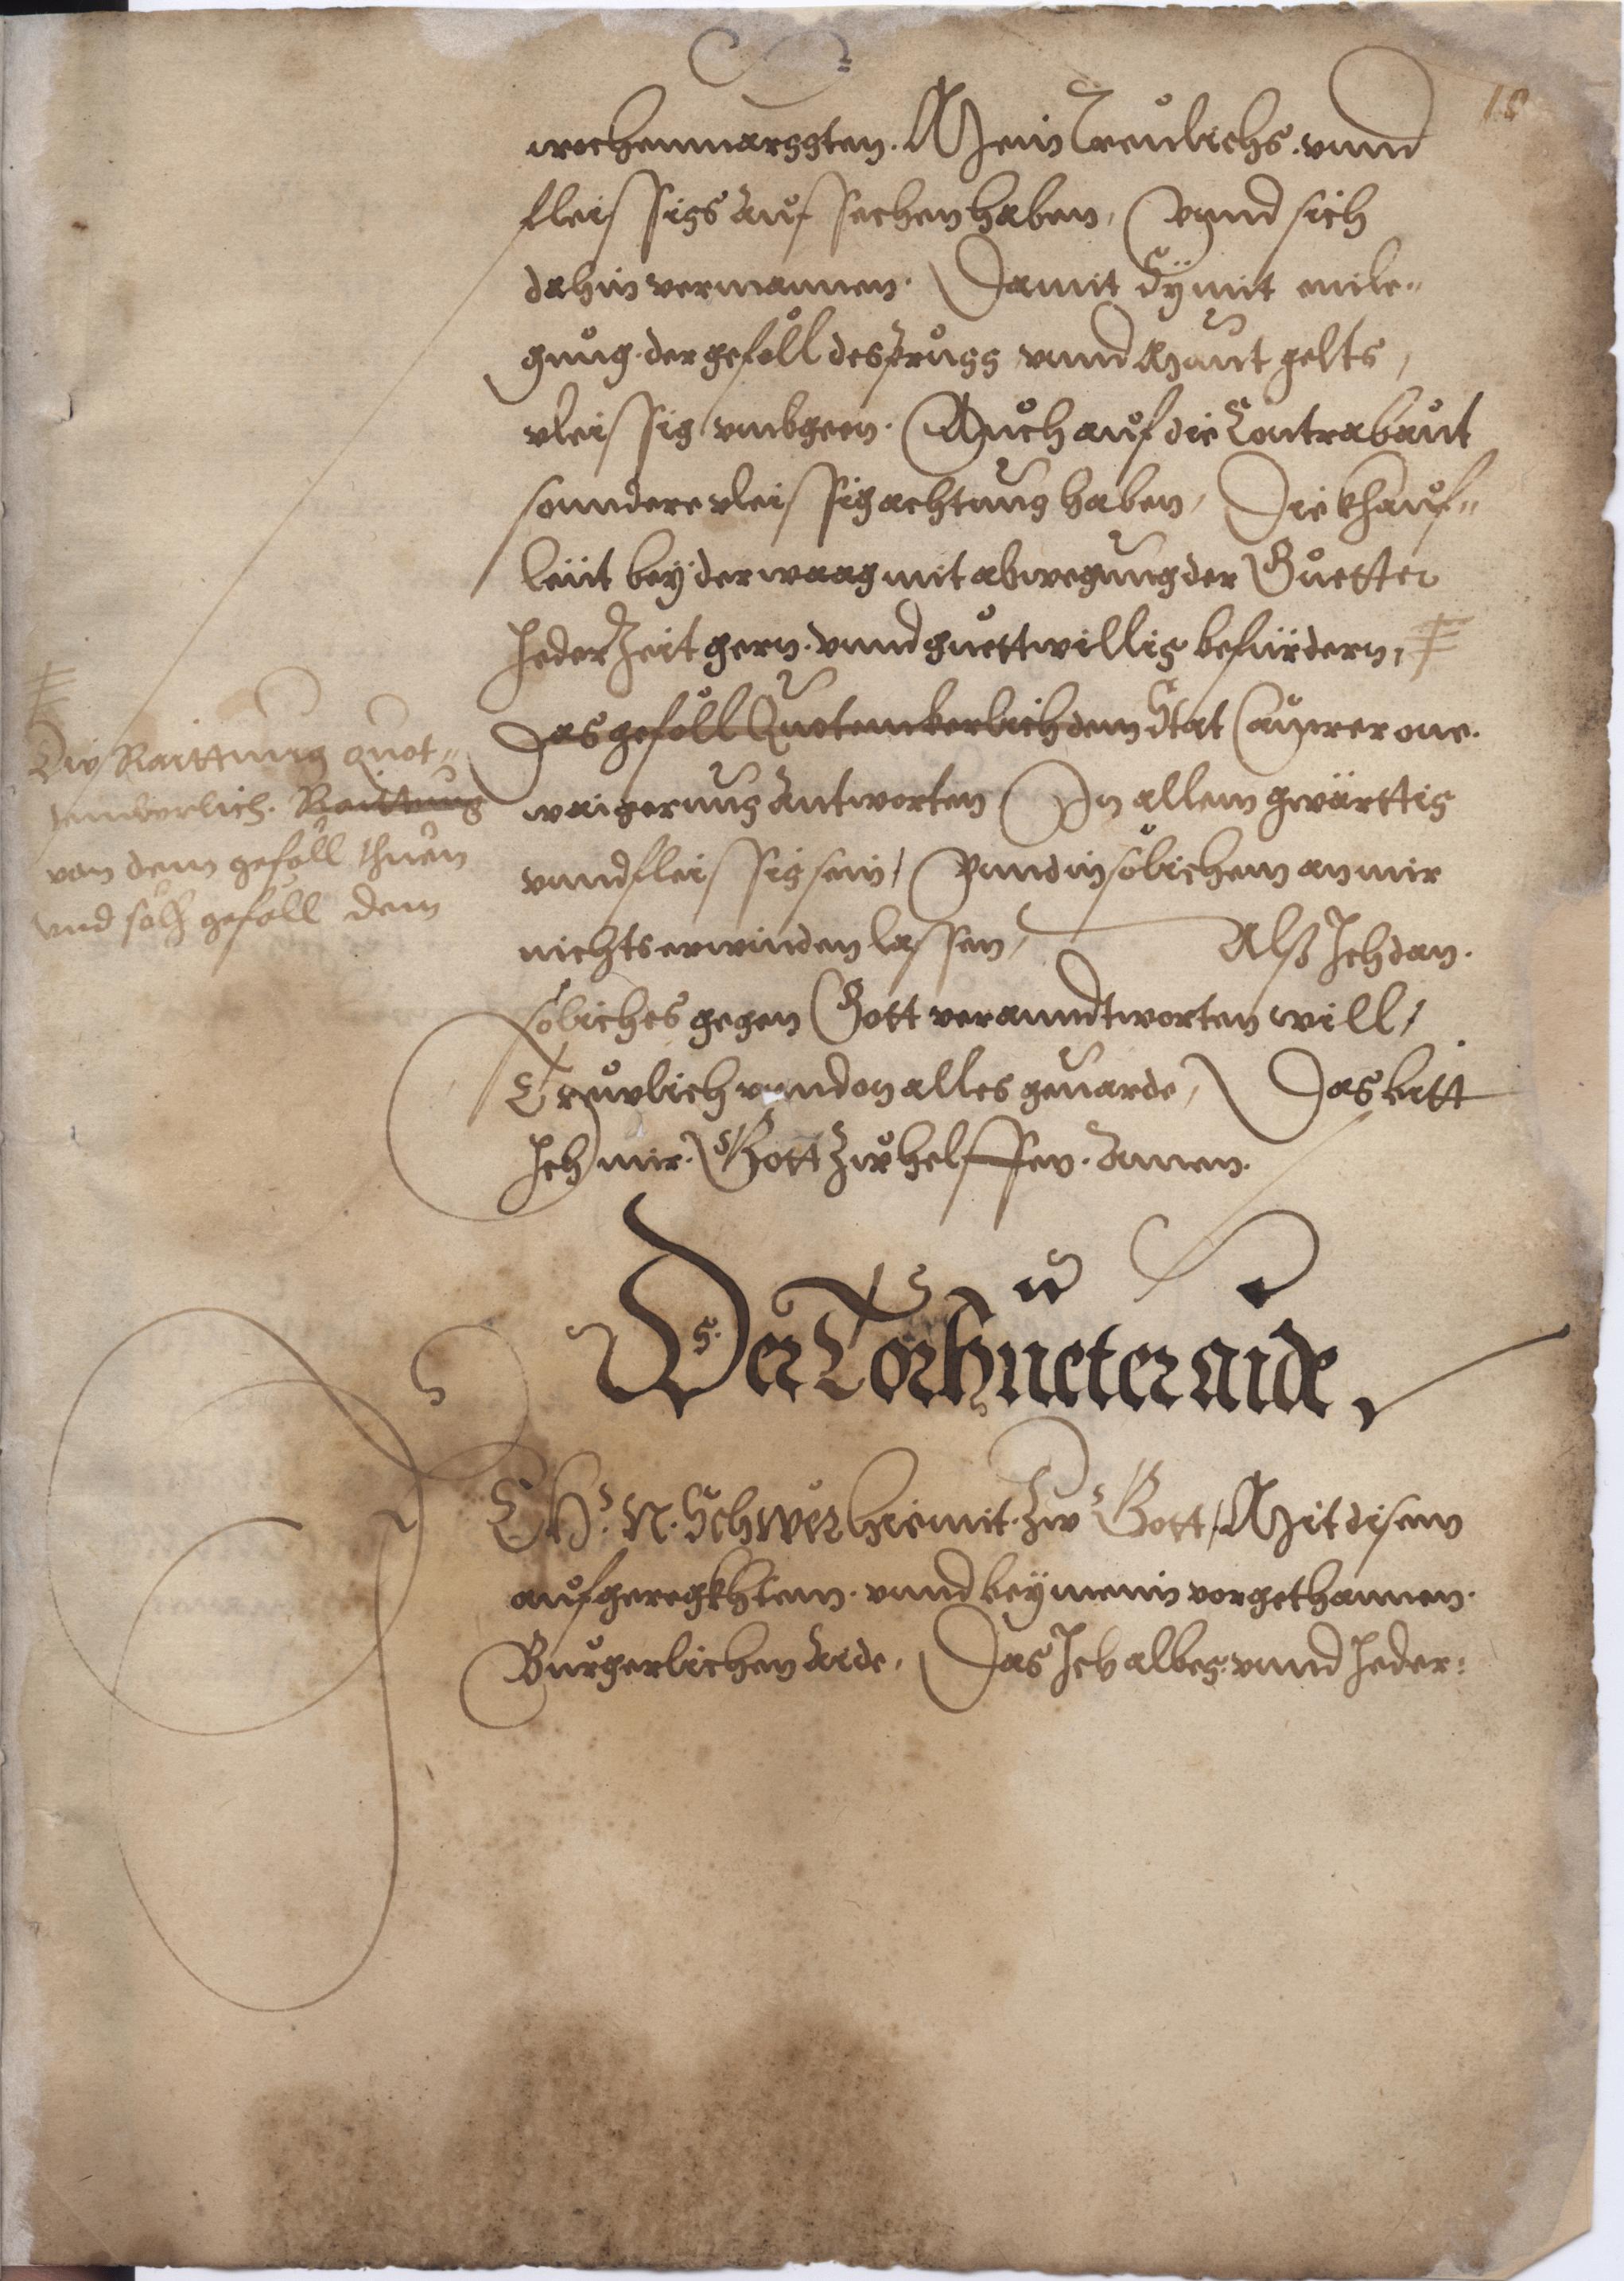 18
wochenmarggten. Mein Treulichs. vnnd
fleissigs aufsechen haben, Vnnd sich
dahin vermannen. Damit Sÿ mit
gung. der gefäll des Prugg vnnd Maut gelts,
vleissig vmbgeen. Auch auf die Contrabant
sonndere vleissig achtung haben, Die khauf-
leüt beÿ der waag mit abwegung der Guetter
Jeder Zeit gern. vnnd guettwillig befürdern,
Das gefäll Quotemberlich dem Stat Camrer one.
waigerung Antworten In allem gwärttig
vnnd fleissig sein, Vnnd in sölichem an mir
nichts erwinden lassen, Alß Jch dan.
söliches gegen Gott veranndtworten will,
Treuolich vnnd on alles geuarde, Das bitt
Jch mir. Gott Zu helffen. Amen.
Die Raittung quot-
temberlich. Raittung
von dem gefäll thuen
vnd solh gefäll dem
Der Torhüeter aide,
ICH. N. Schwer hiemit. Zu Gott, Mit disem
aufgeregkhtem. vnnd beÿ meim vorgethannen.
Burgerlichen Aide, Das Jch alweg. vnnd Jeder-